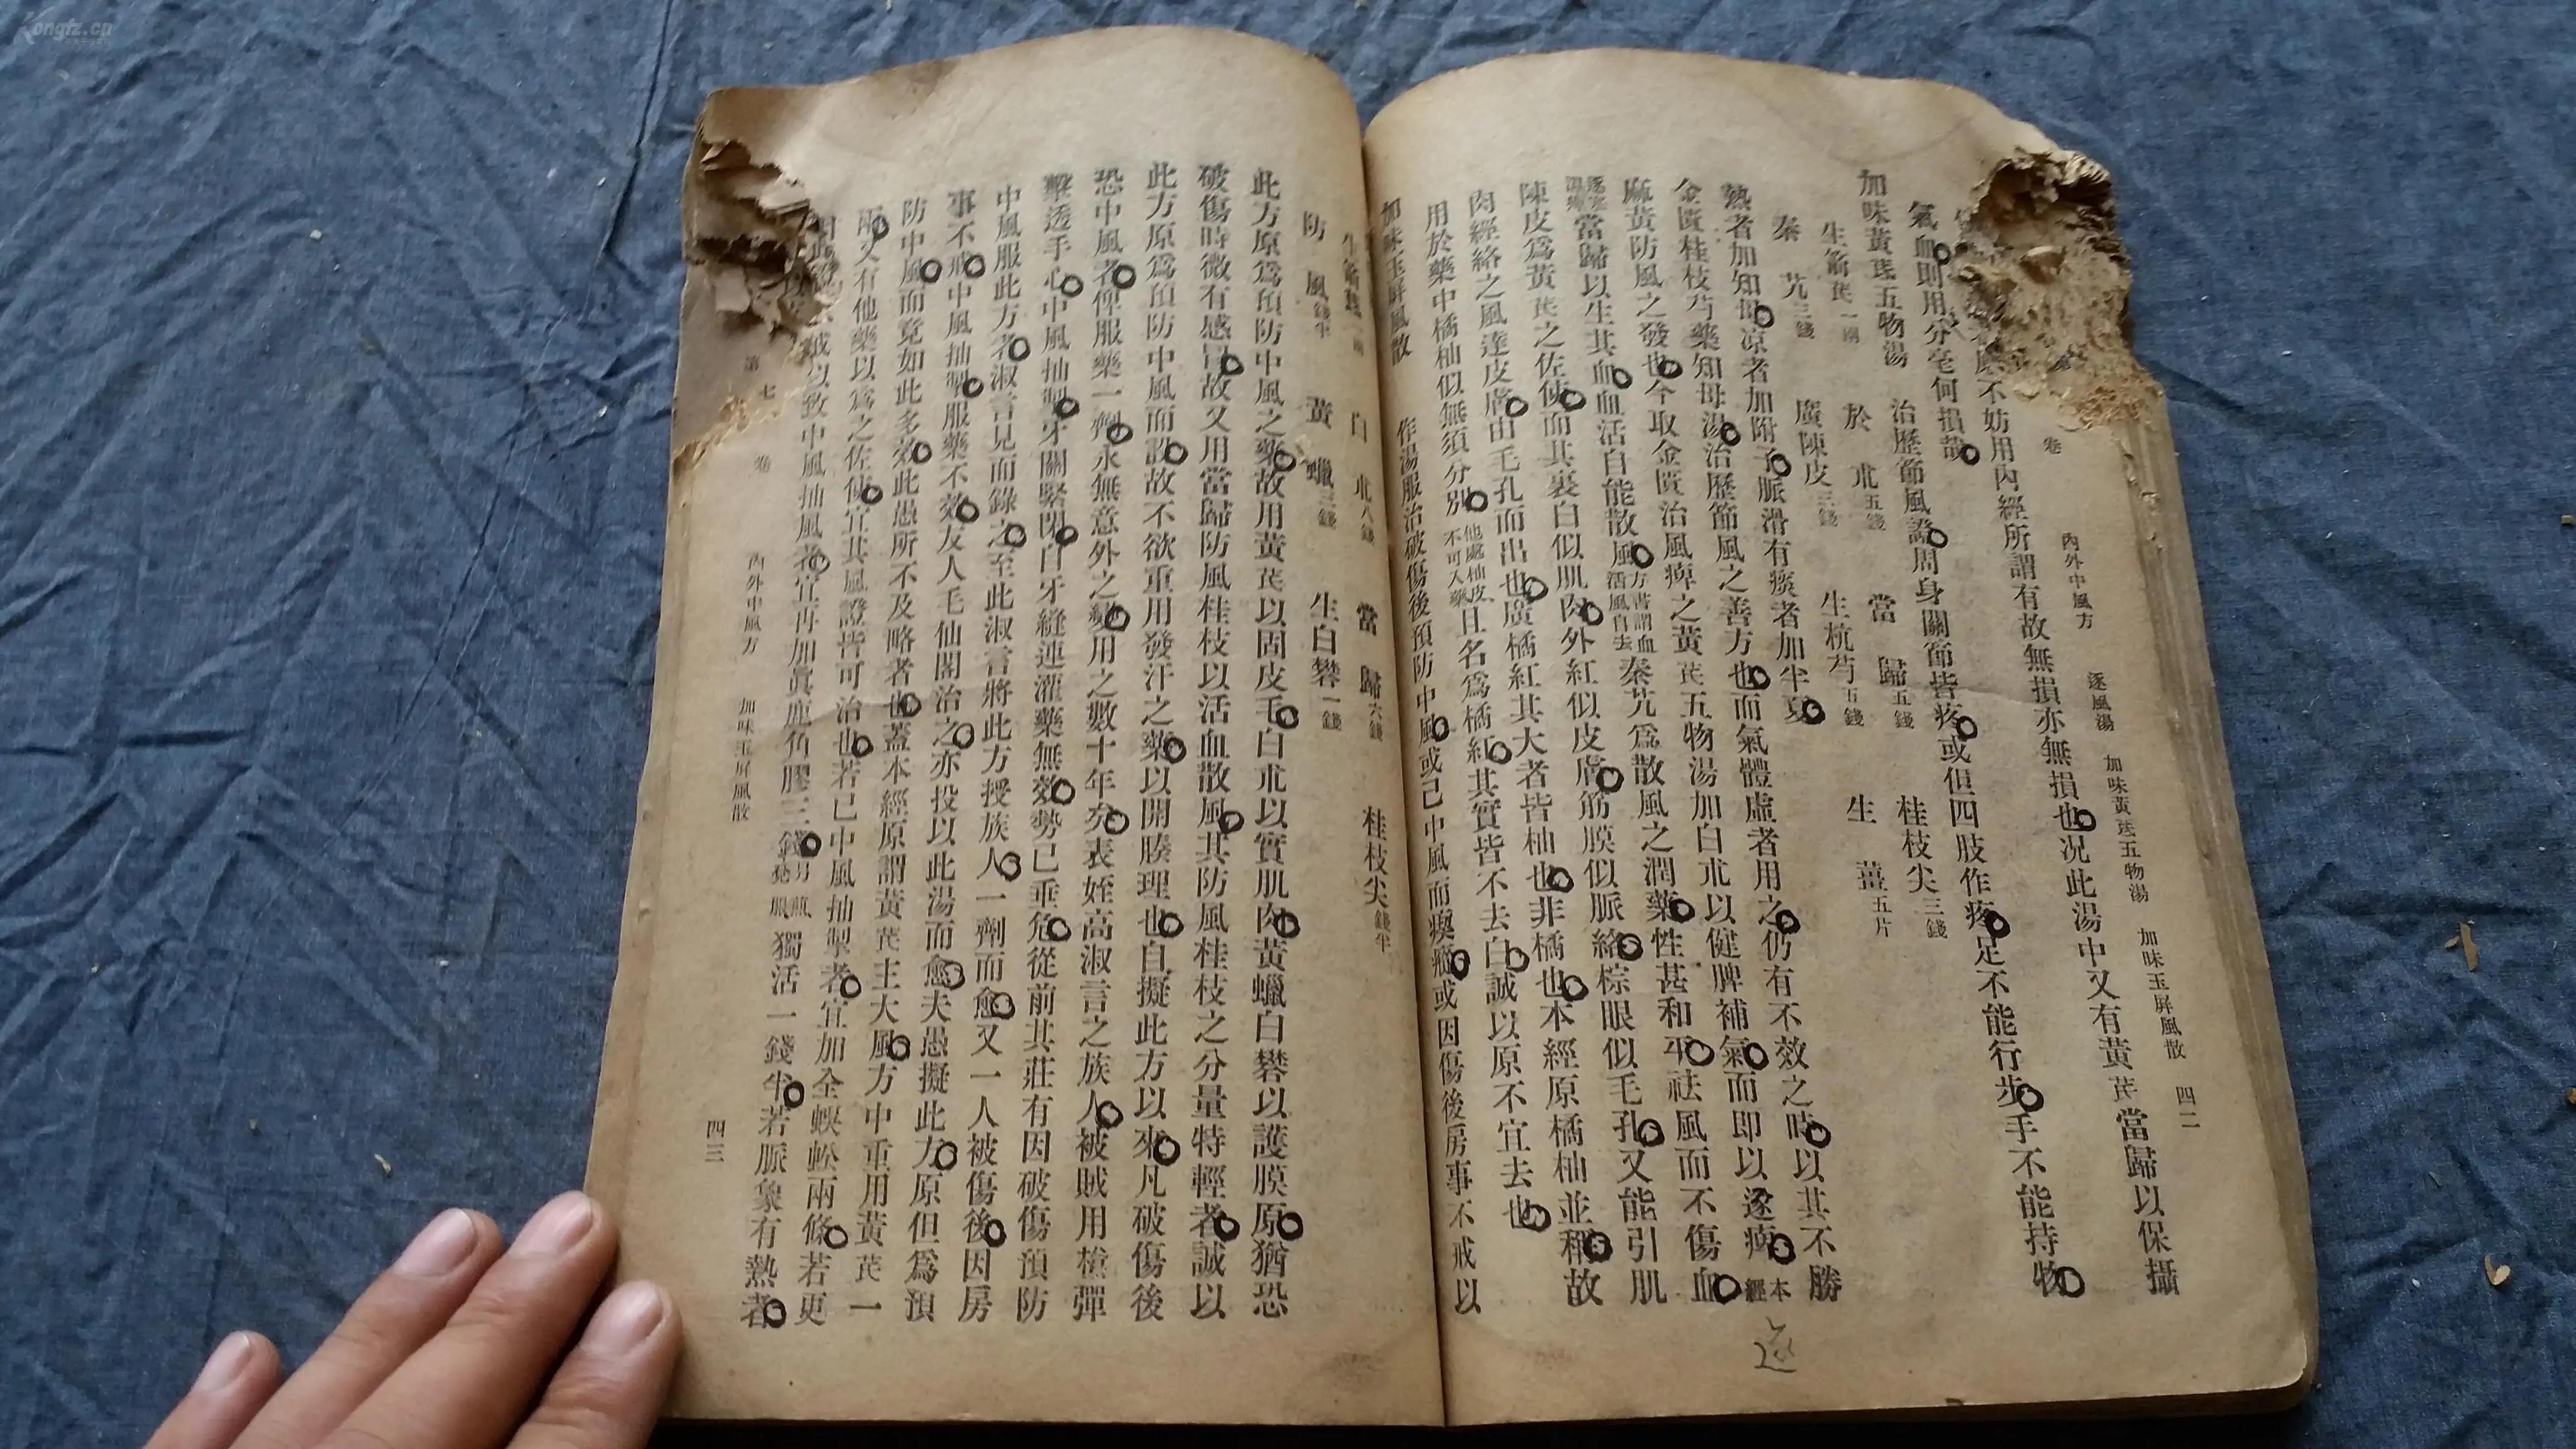 卷 內外中風方 逐風湯 加味黃芪五物湯 加味玉屏風散 四二
不妨用內經所謂有故無損亦無損也況此湯中又有黃芪當歸以保攝
氣血則用分毫何損哉
加味黃芪五物湯 治歷節風證周身關節皆疼或但四肢作疼足不能行步手不能持物
生箭芪一兩 於朮五錢 當歸五錢 桂枝尖三錢
秦艽三錢 廣陳皮三錢 生杭芍五錢 生薑五片
熱者加知母涼者加附子脈滑有痰者加半夏
金匱桂枝芍藥知母湯治歷節風之善方也而氣體虛者用之仍有不效之時以其不勝
麻黃防風之發也今取金匱治風痺之黃芪五物湯加白朮以健脾補氣而即以逐痺本經
逐寒濕痺當歸以生其血血活自能散風方書謂血活風自去秦艽爲散風之潤藥性甚和平祛風而不傷血
陳皮爲黃芪之佐使而其裏白似肌肉外紅似皮膚筋膜似脈絡棕眼似毛孔又能引肌
肉經絡之風達皮膚由毛孔而出也廣橘紅其大者皆柚也非橘也本經原橘柚並稱故
用於藥中橘柚似無須分別他處柚皮不可入藥且名爲橘紅其實皆不去白誠以原不宜去也
加味玉屏風散 作湯服治破傷後預防中風或已中風而瘈瘲或因傷後房事不戒以
生箭芪一兩 白朮八錢 當歸六錢 桂枝尖錢半
防風錢半 黃蠟三錢 生白礬一錢
此方原爲預防中風之藥故用黃芪以固皮毛白朮以實肌肉黃蠟白礬以護膜原猶恐
破傷時微有感冒故又用當歸防風桂枝以活血散風其防風桂枝之分量特輕者誠以
此方原爲預防中風而設故不欲重用發汗之藥以開腠理也自擬此方以來凡破傷後
恐中風者俾服藥一劑永無意外之變用之數十年矣表姪高淑言之族人被賊用槍彈
擊透手心中風抽掣牙關緊閉自牙縫連灌藥無效勢已垂危從前其莊有因破傷預防
中風服此方者淑言見而錄之至此淑言將此方授族人一劑而愈又一人被傷後因房
事不戒中風抽掣服藥不效友人毛仙閣治之亦投以此湯而愈夫愚擬此方原但爲預
防中風而竟如此多效此愚所不及略者也蓋本經原謂黃芪主大風方中重用黃芪一
兩又有他藥以爲之佐使宜其風證皆可治也若已中風抽掣者宜加全蜈蚣兩條若更
戒以致中風抽風者宜再加眞鹿角膠三錢獨活一錢半若脈象有熱者
第七卷 內外中風方 加味玉屏風散 四三